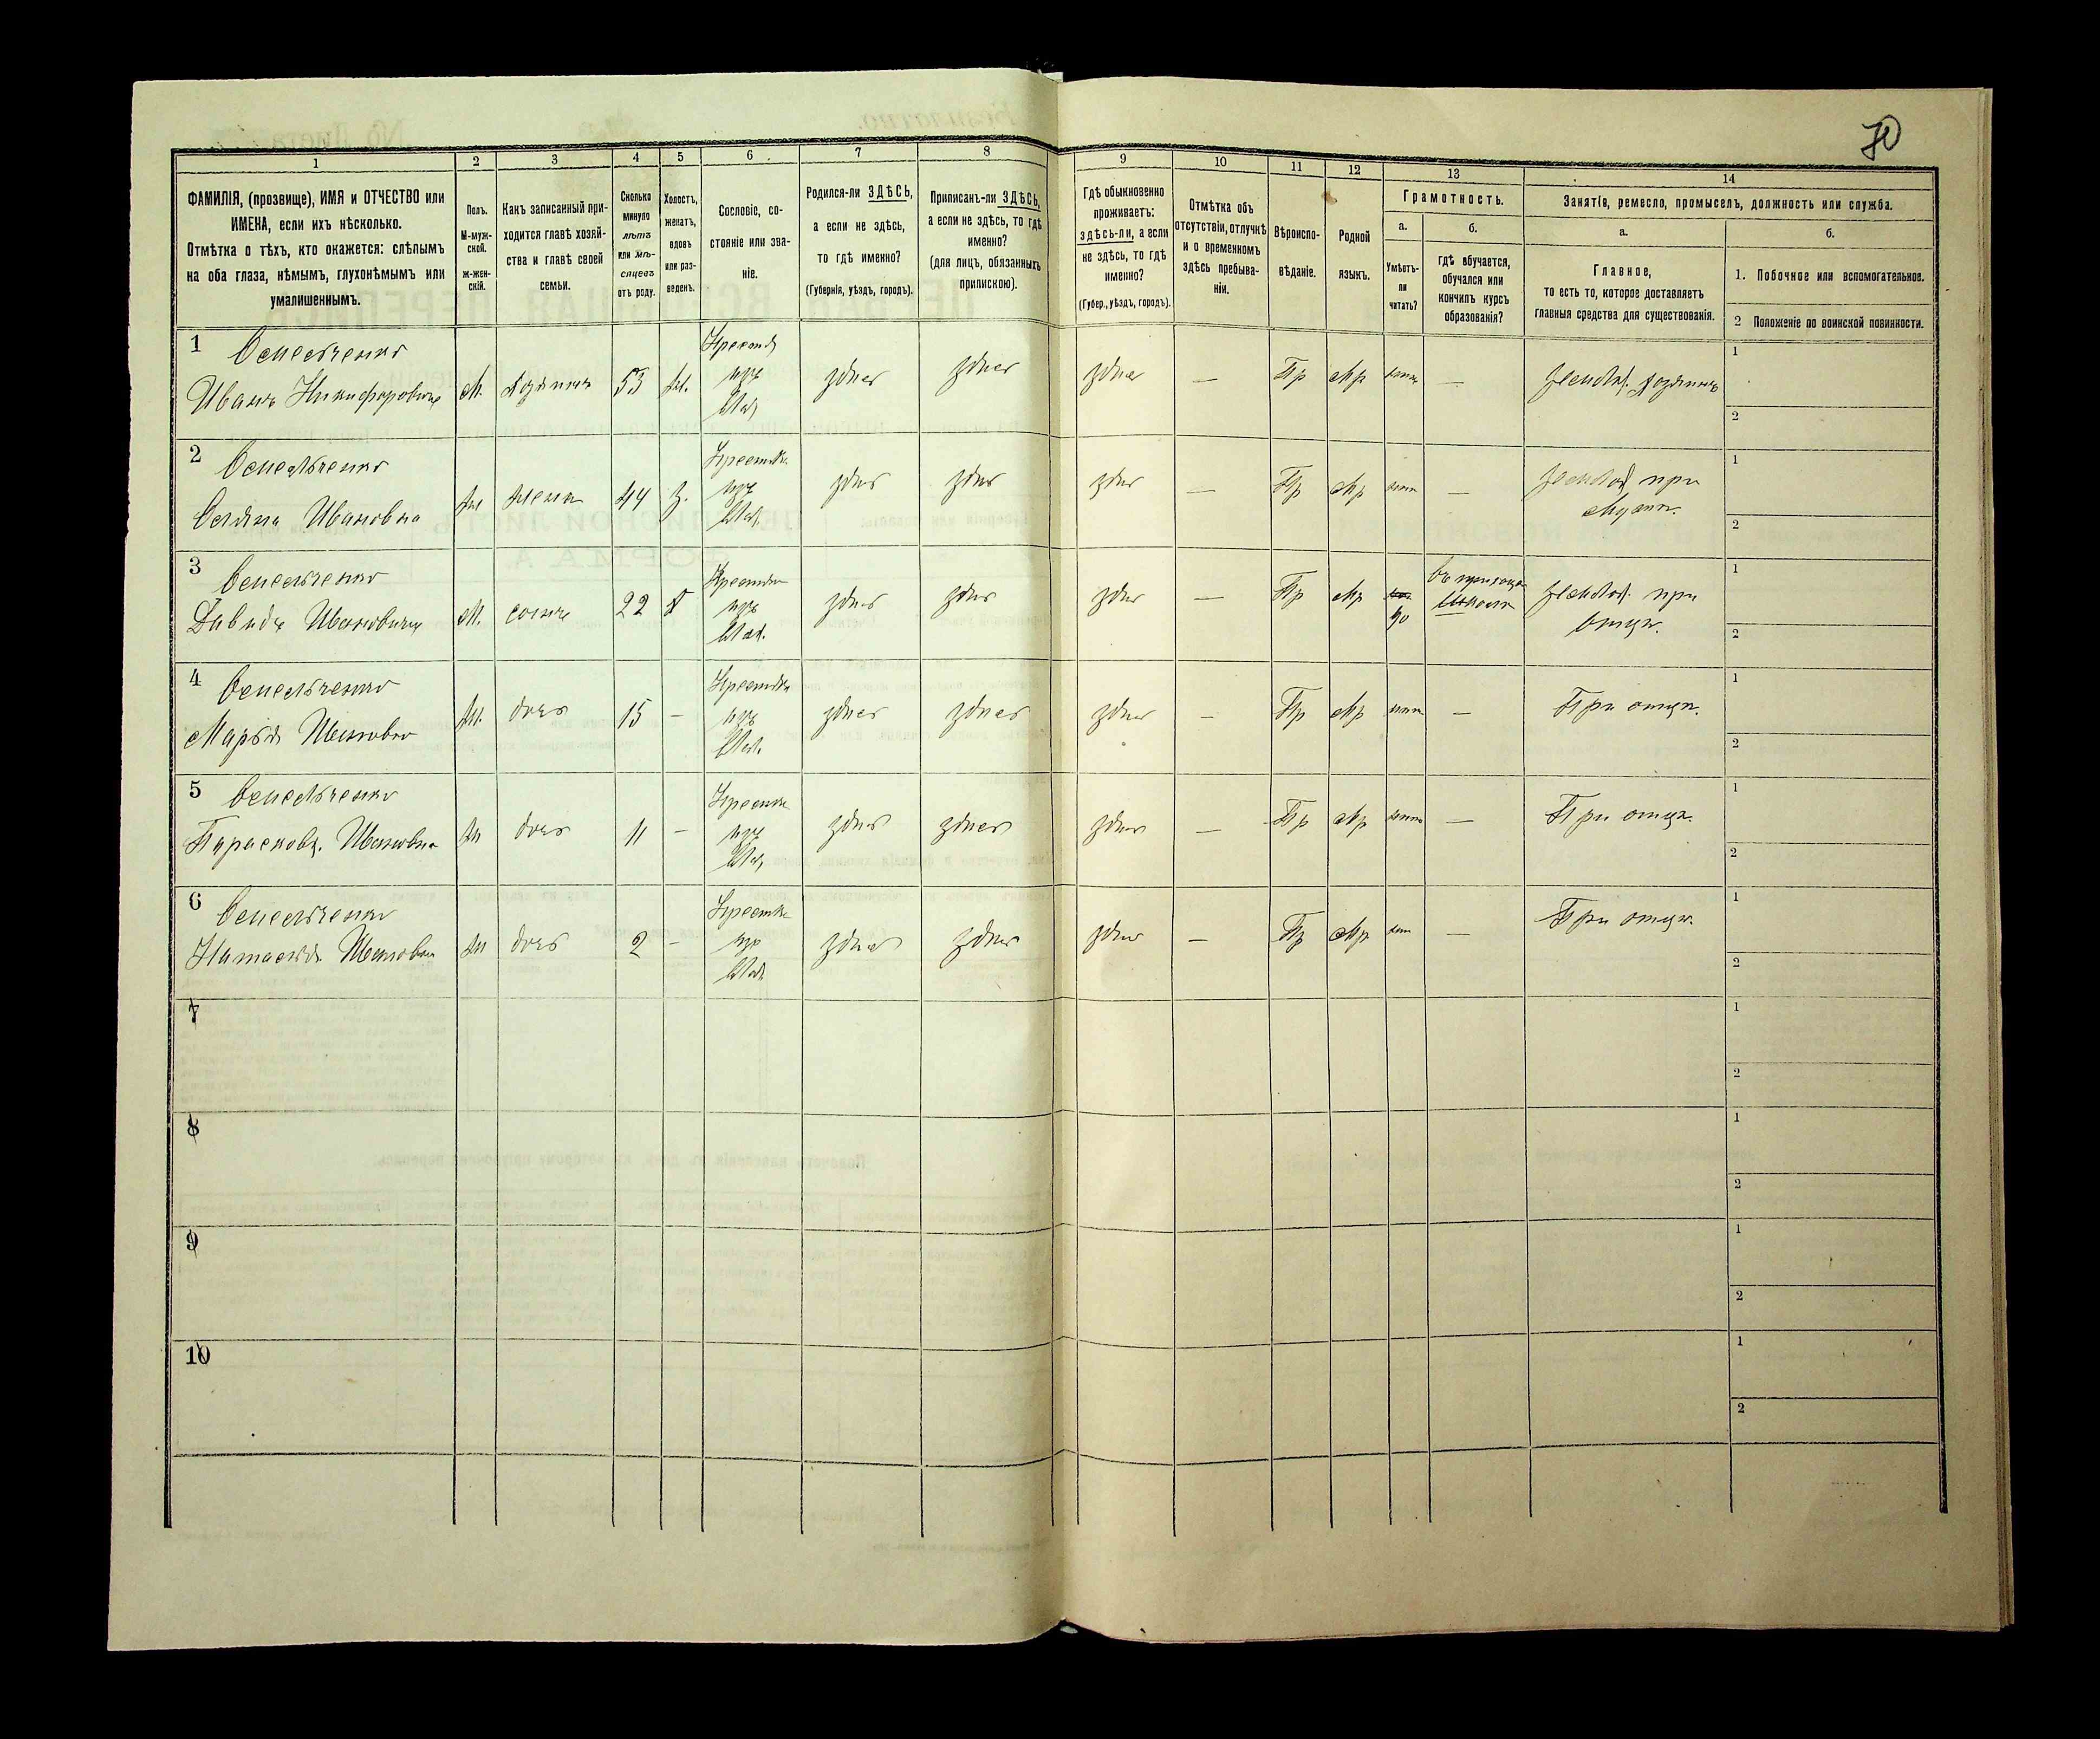 70
1 2 3 4 5 6 7 8 9 10 11 12 13 14
ФАМИЛІЯ, (прозвище), ИМЯ и ОТЧЕСТВО или
ИМЕНА, если ихъ нѣсколько.
Отмѣтка о тѣхъ, кто окажется: слѣпымъ
на оба глаза, нѣмымъ, глухонѣмымъ или
умалишеннымъ.
Полъ.
М-муж-
ской.
ж-жен-
скій.
Какъ записанный при-
ходится главѣ хозяй-
ства и главѣ своей
семьи.
Сколько
минуло
лѣтъ
или мѣ-
сяцевъ
отъ роду.
Холостъ,
женатъ,
вдовъ
или раз-
веденъ.
Сословіе, со-
стояніе или зва-
ніе.
Родился-ли ЗДѢСЬ,
а если не здѣсь,
то гдѣ именно?
(Губернія, уѣздъ, городъ).
Приписанъ-ли ЗДѢСЬ,
а если не здѣсь, то гдѣ
именно?
(для лицъ, обязанныхъ
припискою).
Гдѣ обыкновенно
проживаетъ:
здѣсь-ли, а если
не здѣсь, то гдѣ
именно?
(Губер., уѣздъ, городъ).
Отмѣтка объ
отсутствіи, отлучкѣ
и о временномъ
здѣсь пребыва-
ніи.
Вѣроиспо-
вѣданіе.
Родной
языкъ.
Грамотность.
а.
Умѣетъ-
ли
читать?
б.
гдѣ обучается,
обучался или
кончилъ курсъ
образованія?
Занятіе, ремесло, промыселъ, должность или служба.
а.
Главное,
то есть то, которое доставляетъ
главныя средства для существованія.
б.
1. Побочное или вспомогательное.
2 Положеніе по воинской повинности.
1 Омельченко
Иванъ Никифоровичъ М. хозяинъ 53 ж. здѣсь здѣсь здѣсь — Пр Мр —
1
2
2 Омельченко
Ивановна ж жена 44 з. здѣсь здѣсь здѣсь — Пр Мр — при
1
2
3 Омельченко
Давидъ Ивановичъ М. сынъ 22 х здѣсь здѣсь здѣсь — Пр Мр при
1
2
4 Омельченко
Марья Ивановна ж. дочь 15 — здѣсь здѣсь здѣсь — Пр Мр — При отцѣ.
1
2
5 Омельченко
Ивановна ж дочь 11 — здѣсь здѣсь здѣсь — Пр Мр — При отцѣ.
1
2
6 Омельченко
Ивановна ж дочь 2 — здѣсь здѣсь здѣсь — Пр Мр — При отцѣ.
1
2
7
1
2
8
1
2
9
1
2
10
1
2